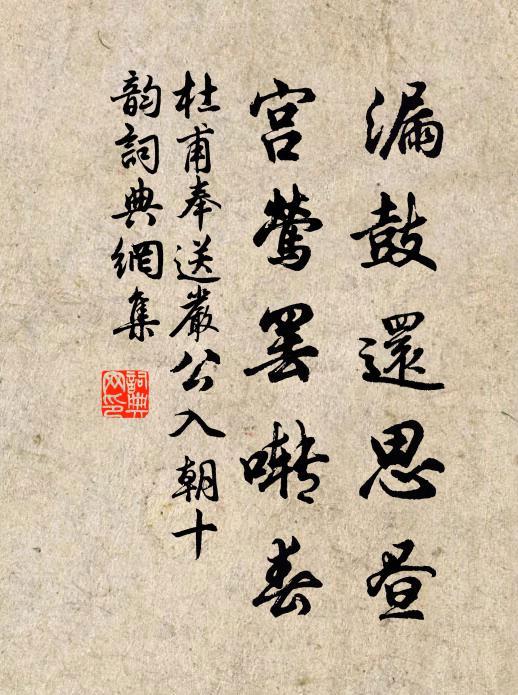 漏鼓還思晝
宮鶯罷囀春
杜甫奉送嚴公入朝十
韵詞典網集
詞典
网印